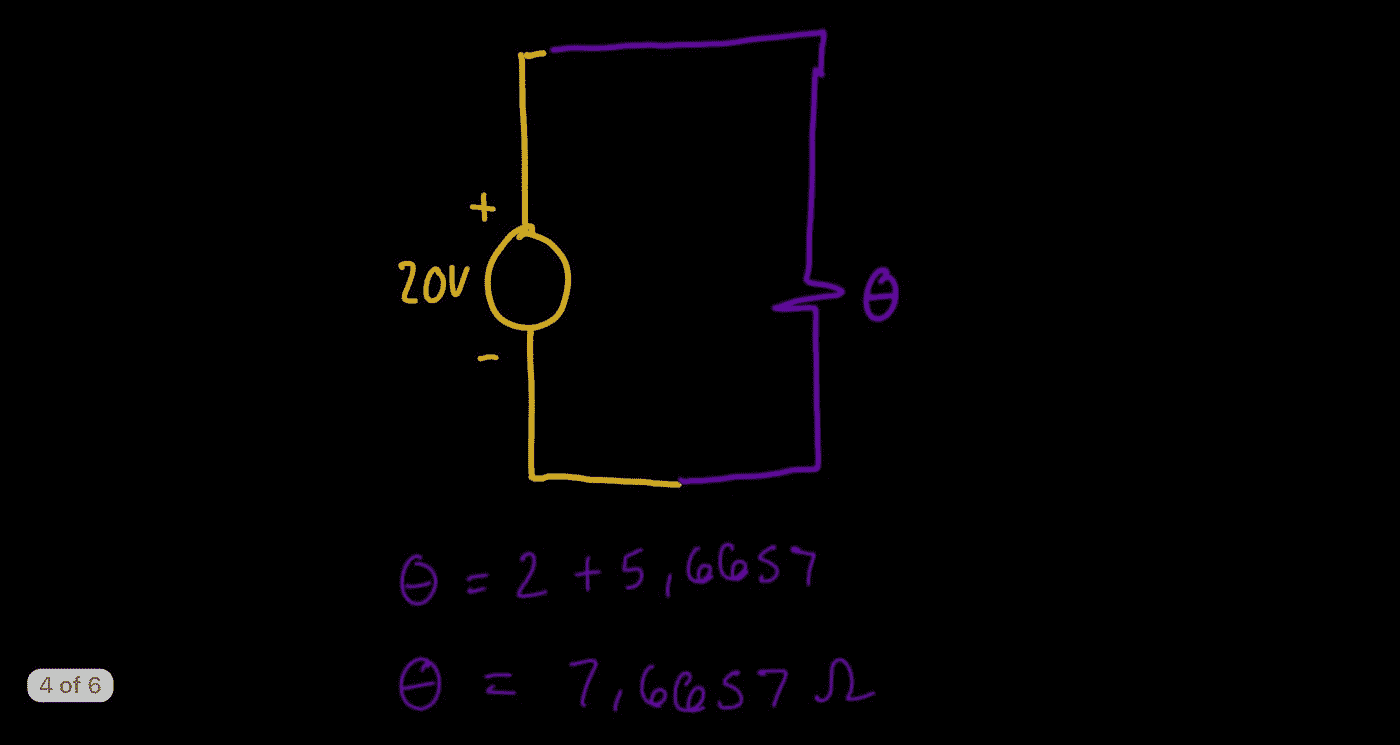 +
20V
-
θ
θ = 2 + 5,6657
θ = 7,6657 Ω
4 of 6